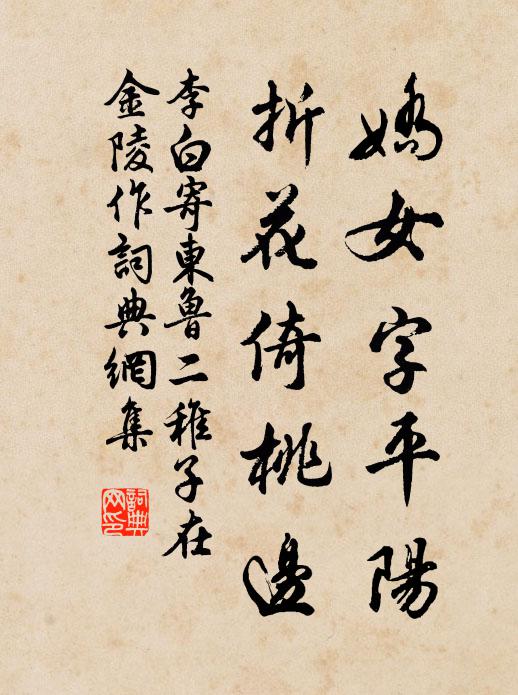 嬌女字平陽
折花倚桃邊
李白寄東魯二稚子在
金陵作詞典網集
詞典网印